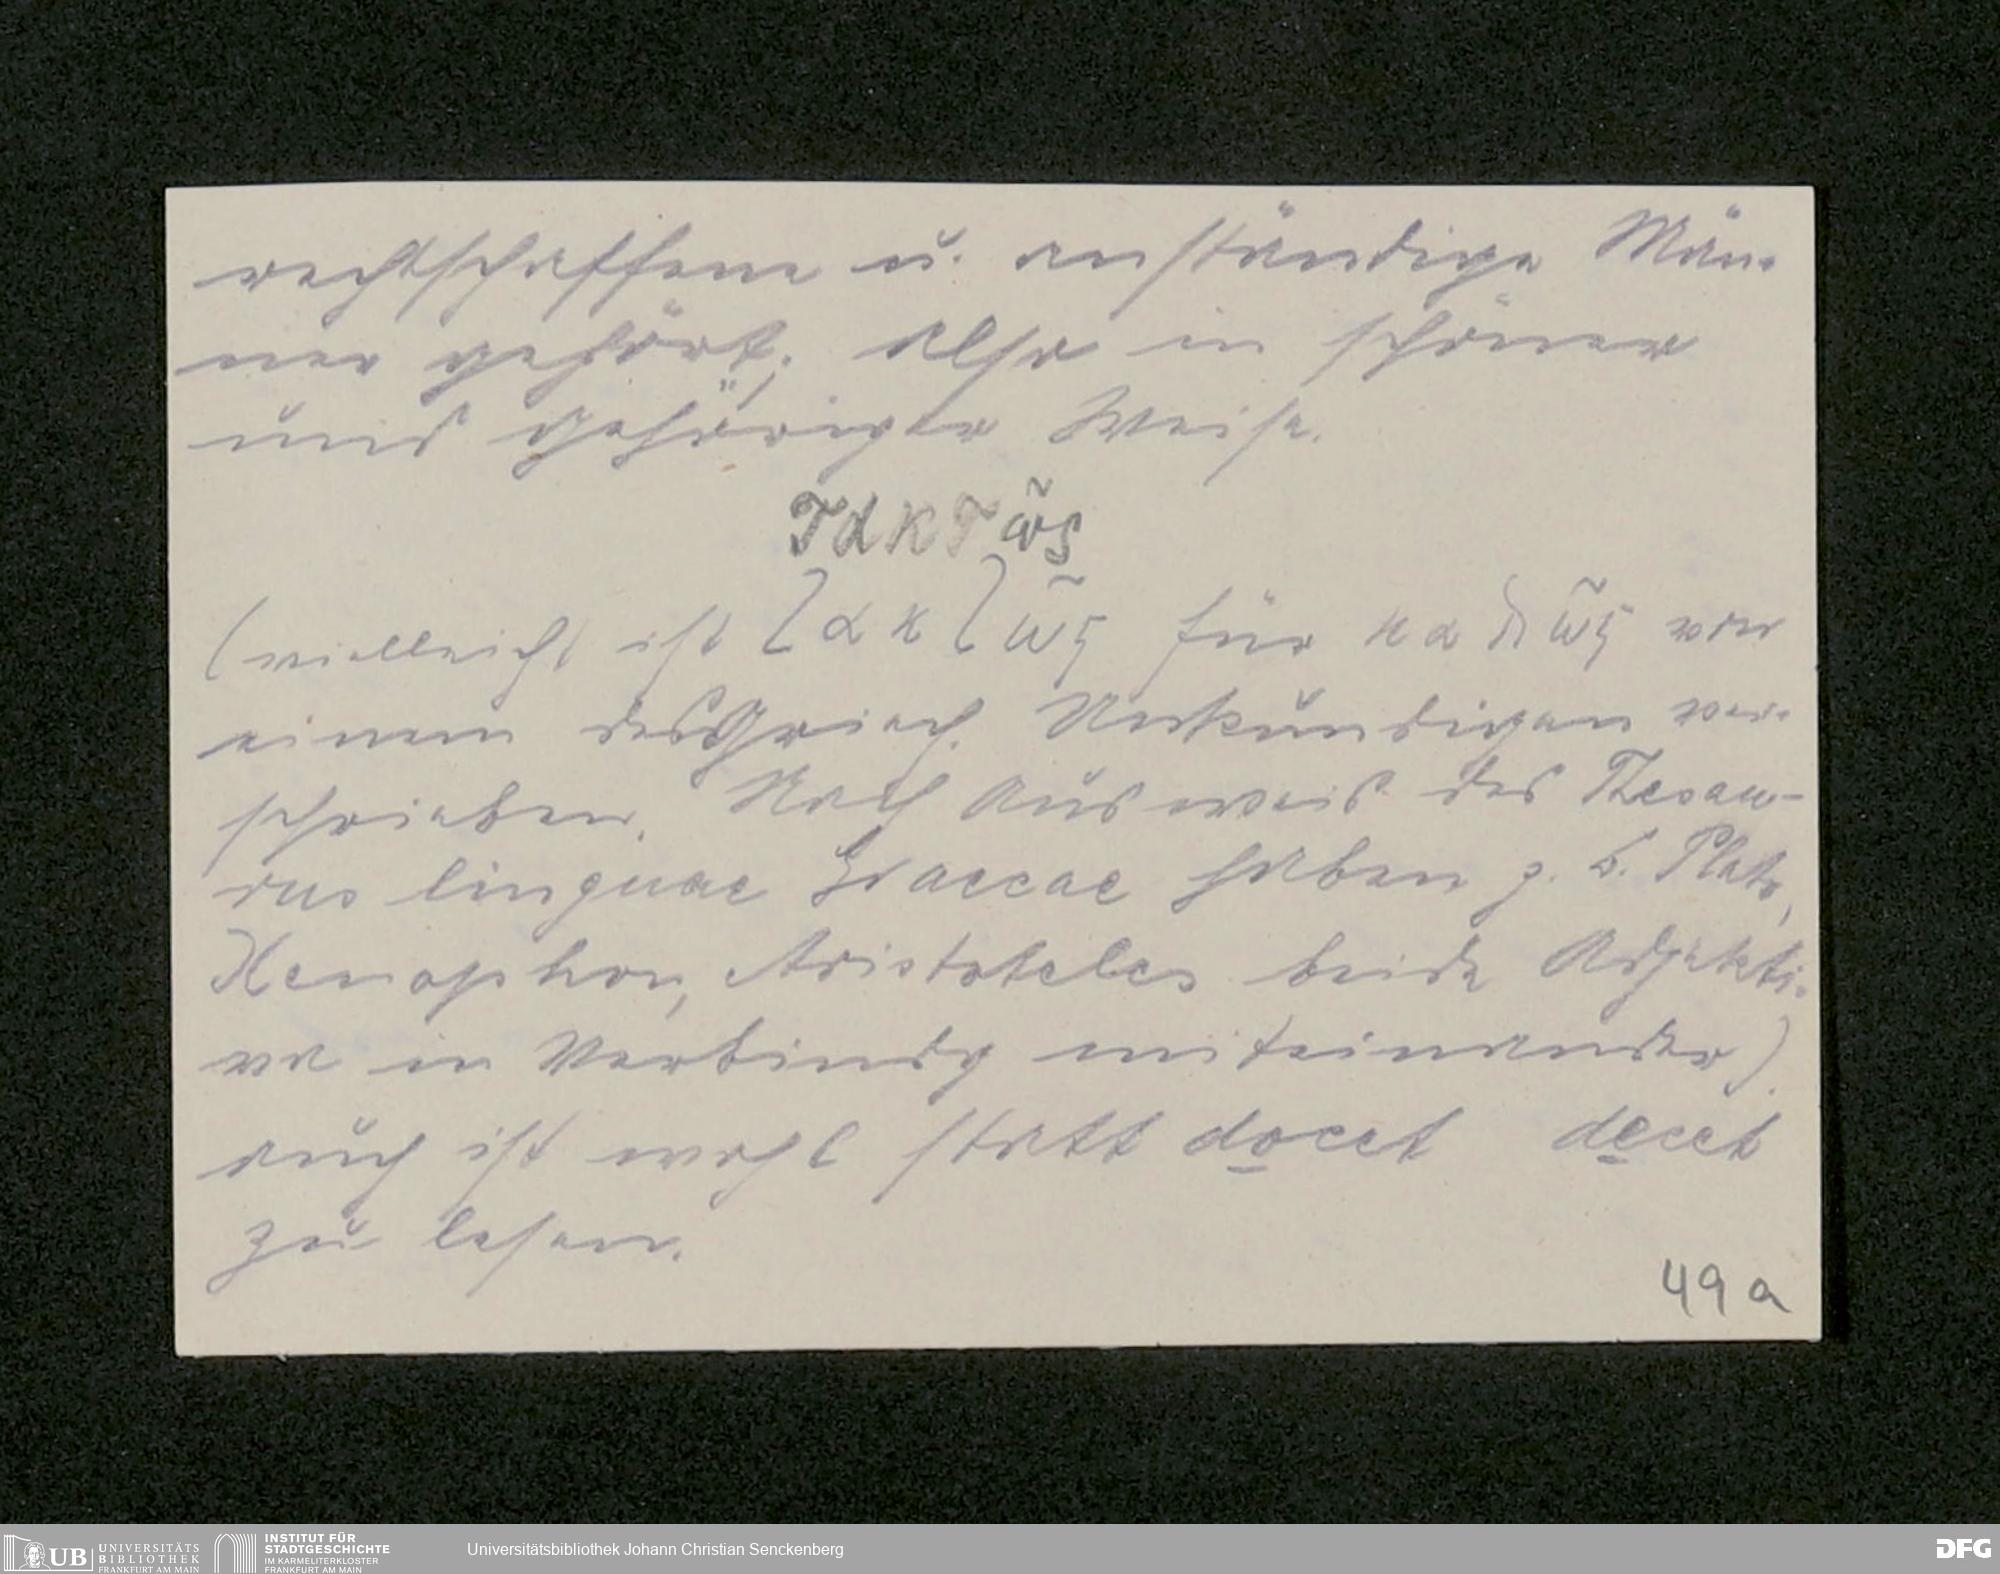 rechtschaffene u. anständige Män-
ner gehört; also in schöner
und gehöriger Weise.
τακτῶς
(vielleicht ist τακτῶς für καλῶς von
einem des Griech. Unkundigen ver-
schrieben. Nach Ausweis des Thesau-
rus linguae Graecae haben z. B. Plato,
Xenophon, Aristoteles beide Adjekti-
va in Verbindg miteinander).
auch ist wohl statt docet decet
zu lesen.
49 a
UB UNIVERSITÄTS
BIBLIOTHEK
FRANKFURT AM MAIN
INSTITUT FÜR
STADTGESCHICHTE
IM KARMELITERKLOSTER
FRANKFURT AM MAIN
Universitätsbibliothek Johann Christian Senckenberg
DFG